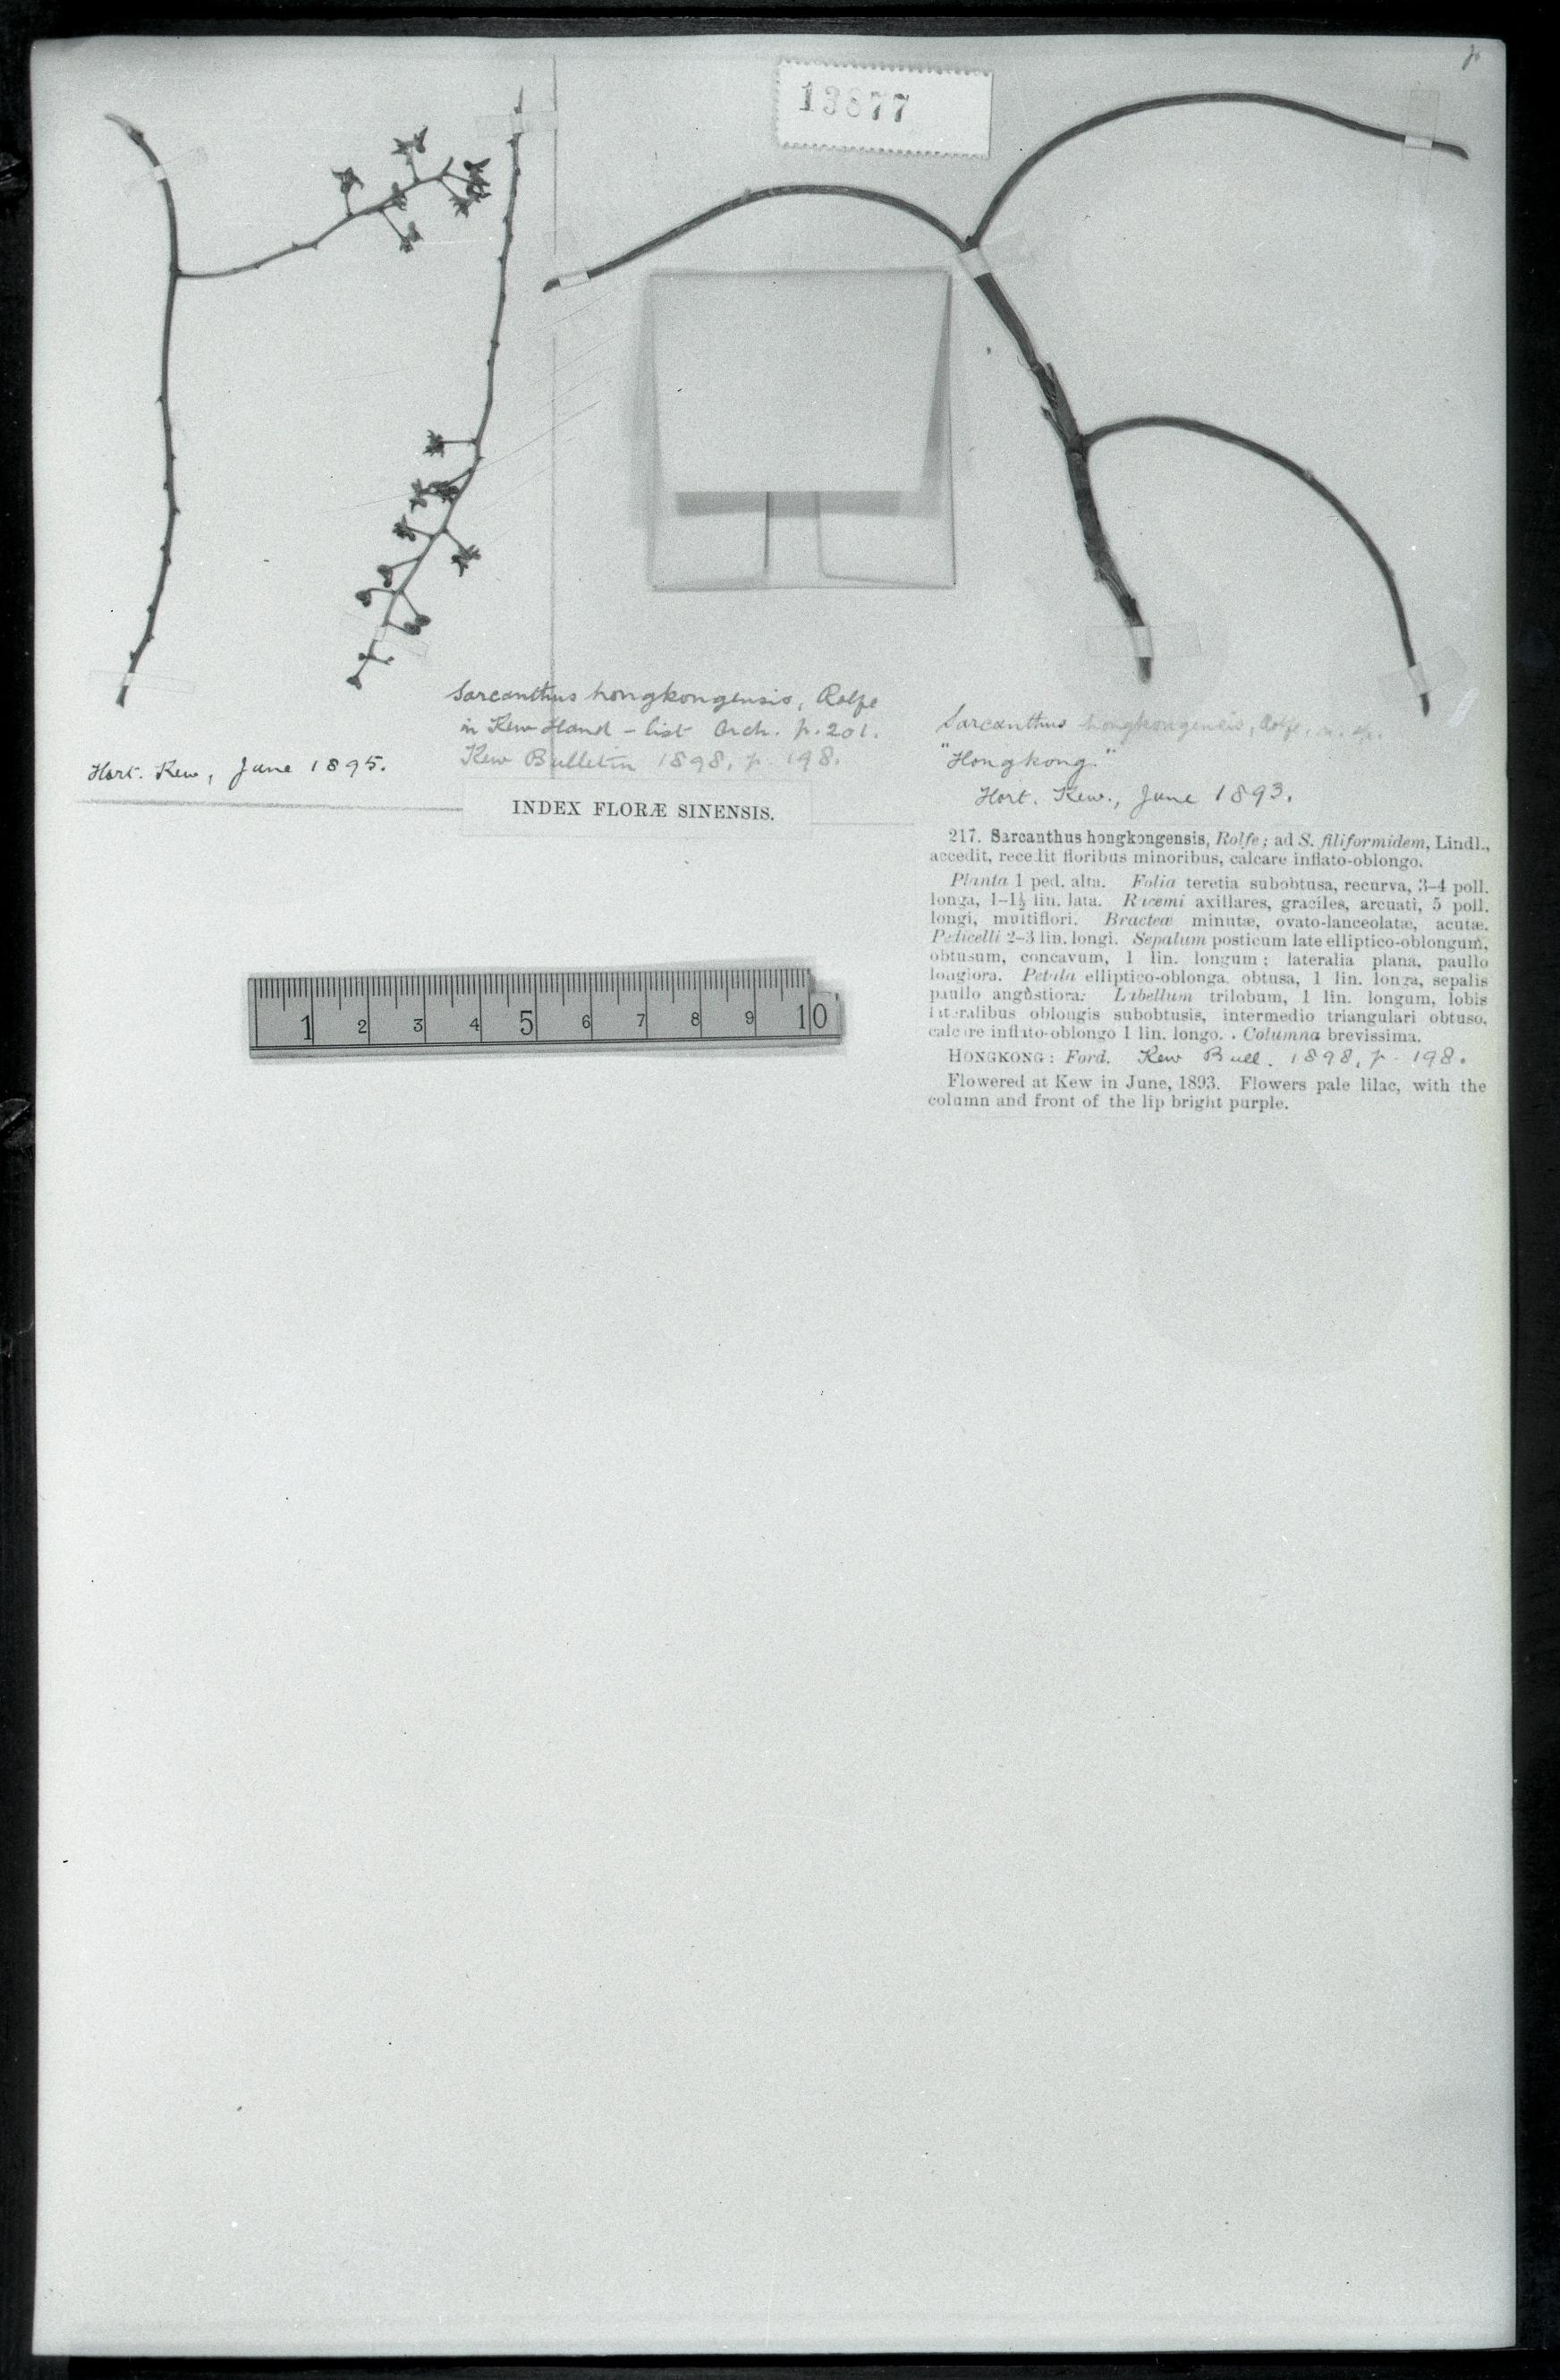 13877
Sarcanthus hongkongensis, Rolfe
in Kew Hand-list Orch. p. 201.
Kew Bulletin 1898, p. 198.
Hort. Kew, June 1895.
INDEX FLORÆ SINENSIS.
Sarcanthus hongkongensis, Rolfe, n. sp.
"Hongkong."
Hort. Kew., June 1893.
217. Sarcanthus hongkongensis, Rolfe; ad S. filiformidem, Lindl.,
accedit, recedit floribus minoribus, calcare inflato-oblongo.
Planta 1 ped. alta. Folia teretia subobtusa, recurva, 3–4 poll.
longa, 1–1½ lin. lata. Racemi axillares, graciles, arcuati, 5 poll.
longi, multiflori. Bracteæ minutæ, ovato-lanceolatæ, acutæ.
Pedicelli 2–3 lin. longi. Sepalum posticum late elliptico-oblongum,
obtusum, concavum, 1 lin. longum; lateralia plana, paullo
longiora. Petala elliptico-oblonga, obtusa, 1 lin. longa, sepalis
paullo angustiora. Labellum trilobum, 1 lin. longum, lobis
lateralibus oblongis subobtusis, intermedio triangulari obtuso,
calcare inflato-oblongo 1 lin. longo. Columna brevissima.
HONGKONG: Ford. Kew Bull. 1898, p. 198.
Flowered at Kew in June, 1893. Flowers pale lilac, with the
column and front of the lip bright purple.
1 2 3 4 5 6 7 8 9 10